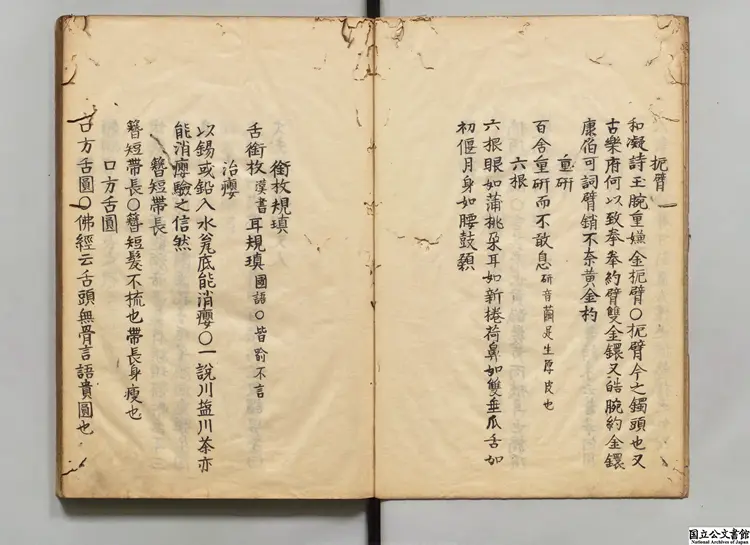 扼臂
和凝詩玉腕重嫌金扼臂○扼臂今之鐲頭也又
古樂府何以致拳拳約臂雙金鐶又皓腕約金鐶
康伯可詞臂銷不奈黃金杓
重研
百舍重研而不敢息研音繭足生厚皮也
六根
六根眼如蒲桃朶耳如新捲荷鼻如雙垂瓜舌如
初偃月身如腰鼓顙
銜枚規瑱
舌銜枚漢書耳規瑱國語○皆喻不言
治癭
以錫或鉛入水瓮底能消癭○一說川盐川茶亦
能消癭驗之信然
簪短帶長
簪短帶長○簪短髮不梳也帶長身瘦也
口方舌圓
口方舌圓○佛經云舌頭無骨言語貴圓也
国立公文書館
National Archives of Japan